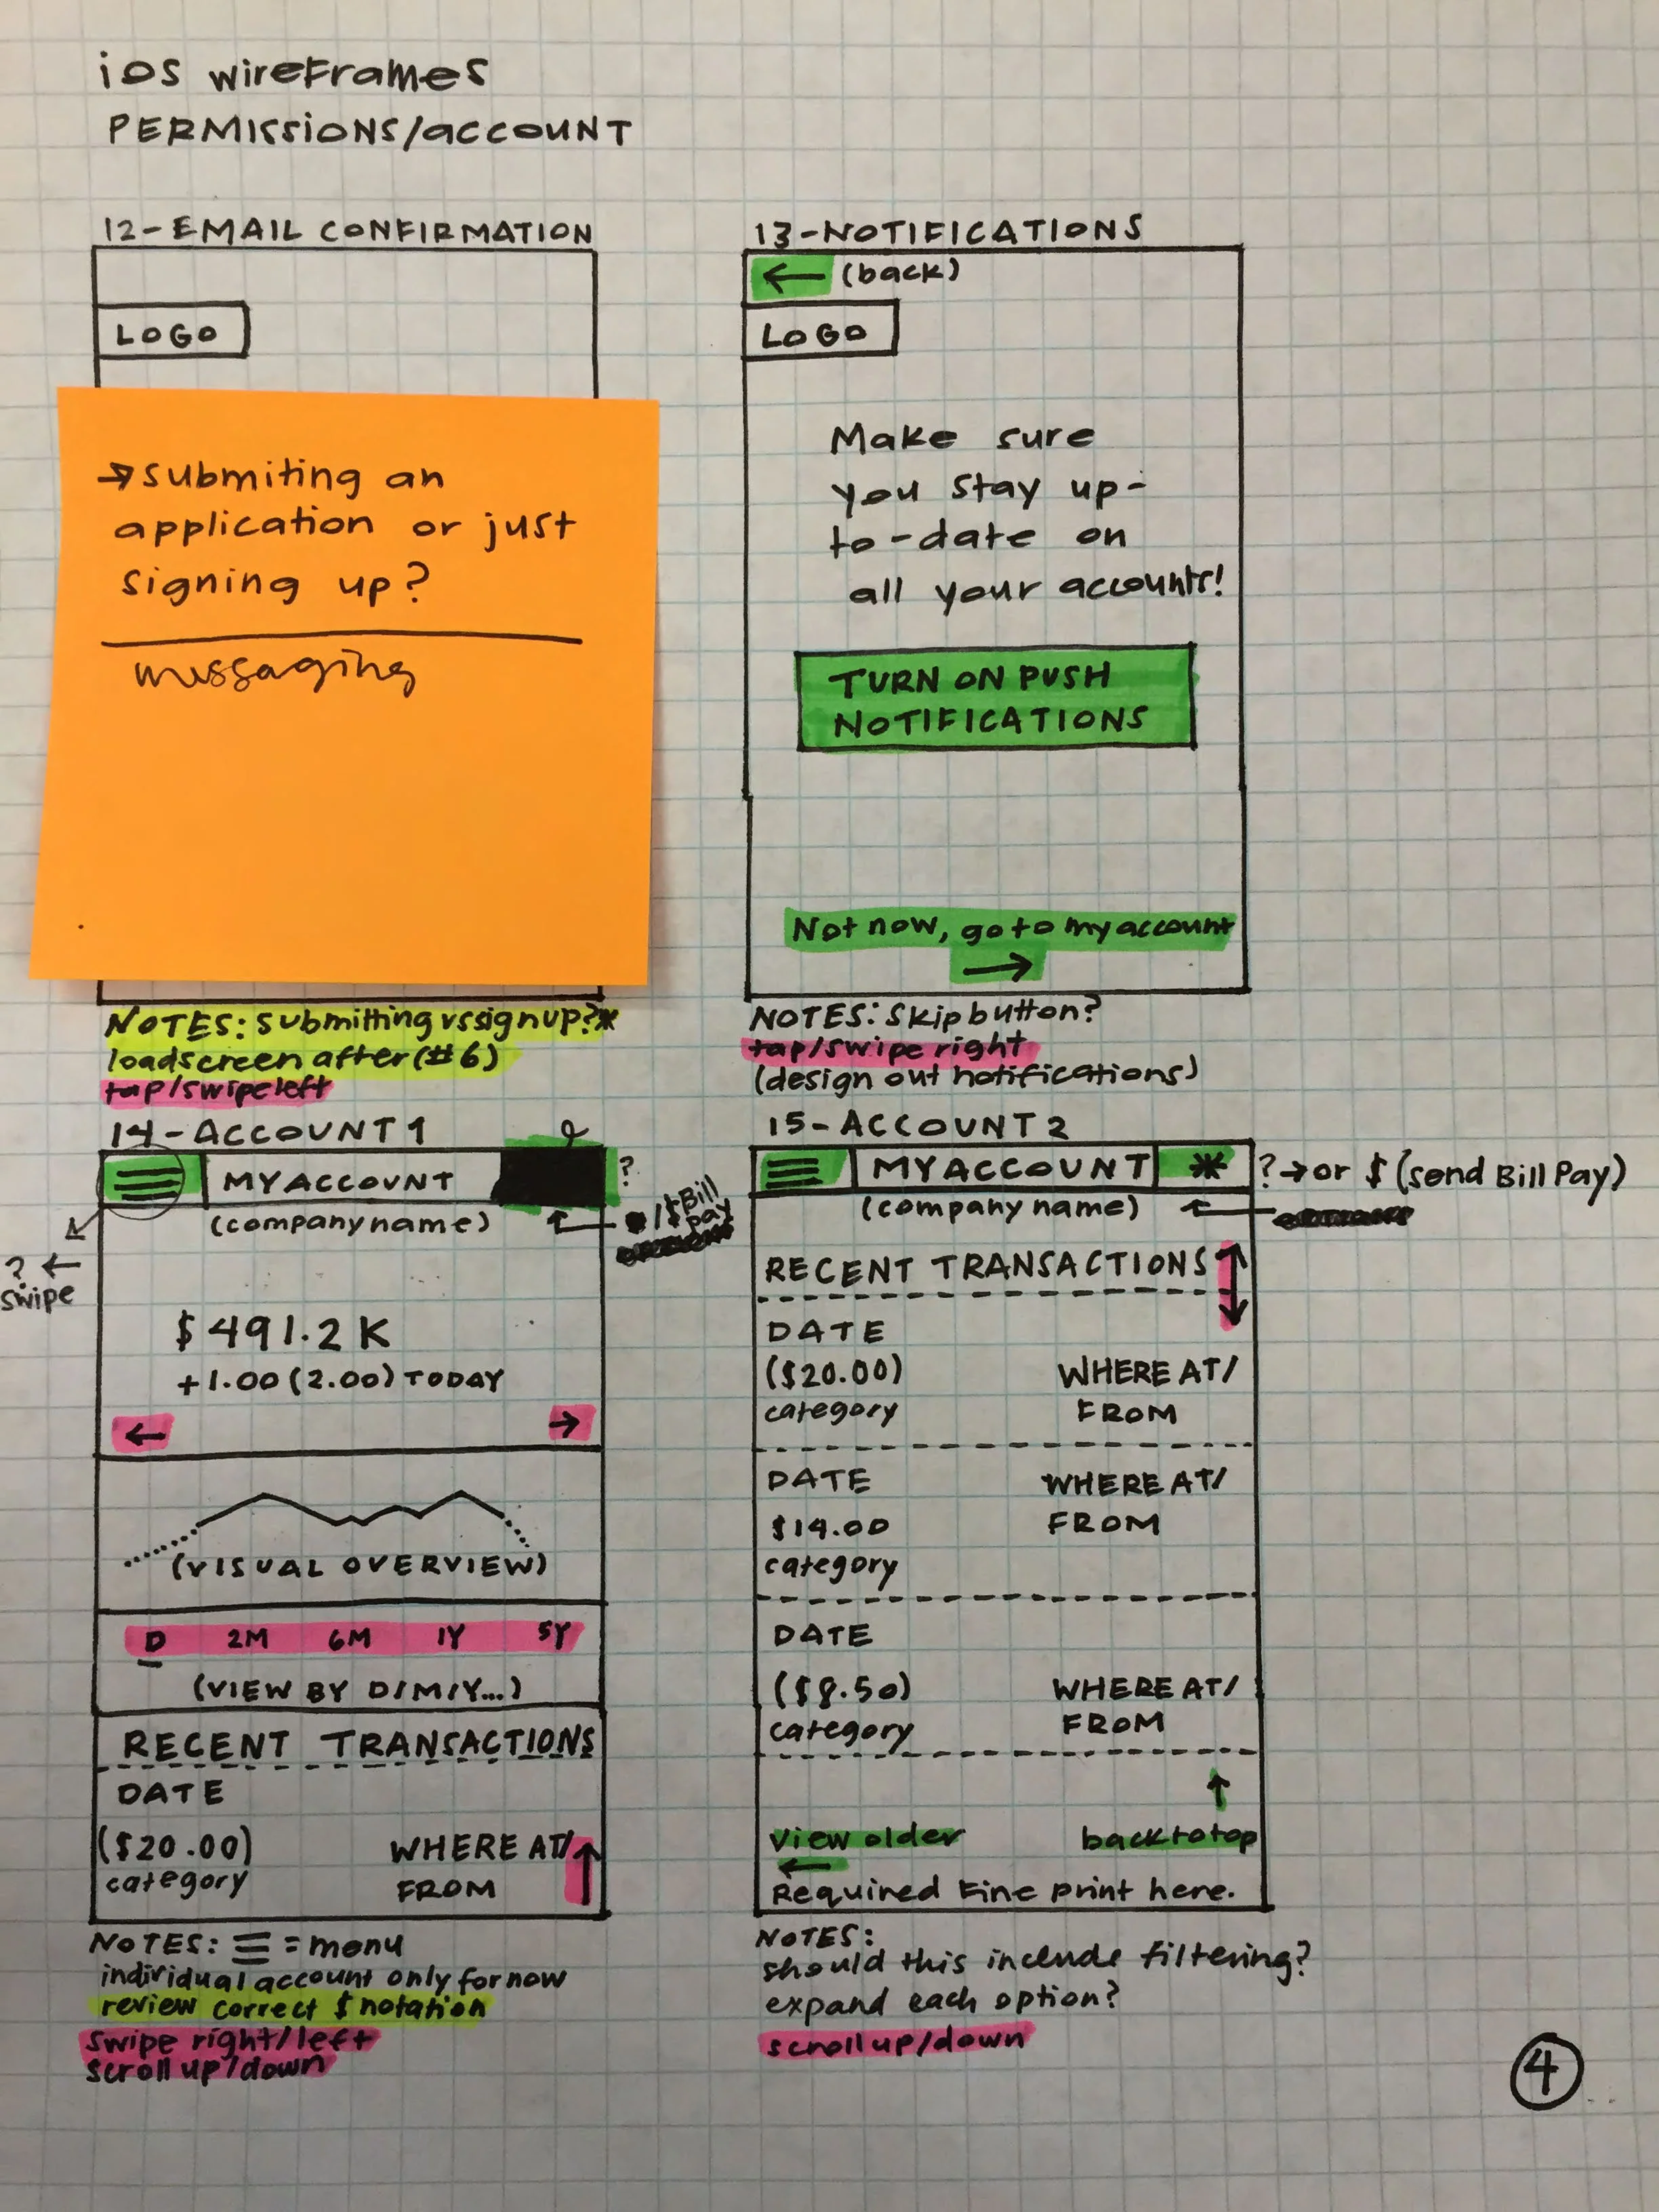 iOS wireframes
PERMISSIONS/account
12-EMAIL CONFIRMATION
LOGO
→ submiting an
application or just
signing up?
messaging
NOTES: submitting vs signup?*
loadscreen after (#6)
tap/swipe left
13-NOTIFICATIONS
← (back)
LOGO
Make sure
you stay up-
to-date on
all your accounts!
TURN ON PUSH
NOTIFICATIONS
Not now, go to my account
→
NOTES: Skip button?
tap/swipe right
(design out notifications)
14-ACCOUNT 1
MY ACCOUNT
?
(company name)
← 1$ Bill
pay
? ←
swipe
$491.2K
+1.00 (2.00) TODAY
← →
(VISUAL OVERVIEW)
D 2M 6M 1Y 5Y
(VIEW BY D/M/Y...)
RECENT TRANSACTIONS
DATE
($20.00) WHERE AT/
category FROM
NOTES: ☰ = menu
individual account only for now
review correct $ notation
swipe right/left
scroll up/down
15-ACCOUNT 2
MY ACCOUNT * ? → or $ (send Bill Pay)
(company name) ←
RECENT TRANSACTIONS
DATE
($20.00) WHERE AT/
category FROM
DATE WHERE AT/
$19.00 FROM
category
DATE
($8.50) WHERE AT/
category FROM
↑
View older back to top
←
Required Fine print here.
NOTES:
should this include filtering?
expand each option?
scroll up/down
4